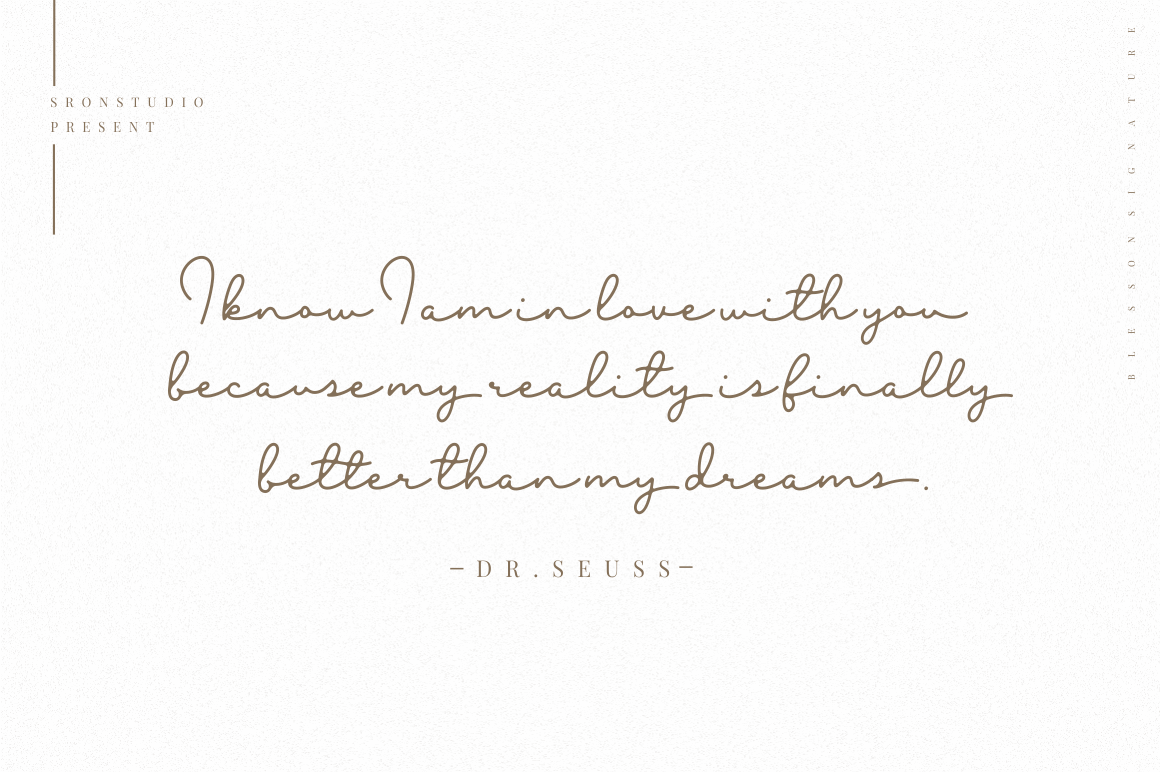 SRONSTUDIO
PRESENT
BLESSON SIGNATURE
I know I am in love with you
because my reality is finally
better than my dreams.
-DR.SEUSS-